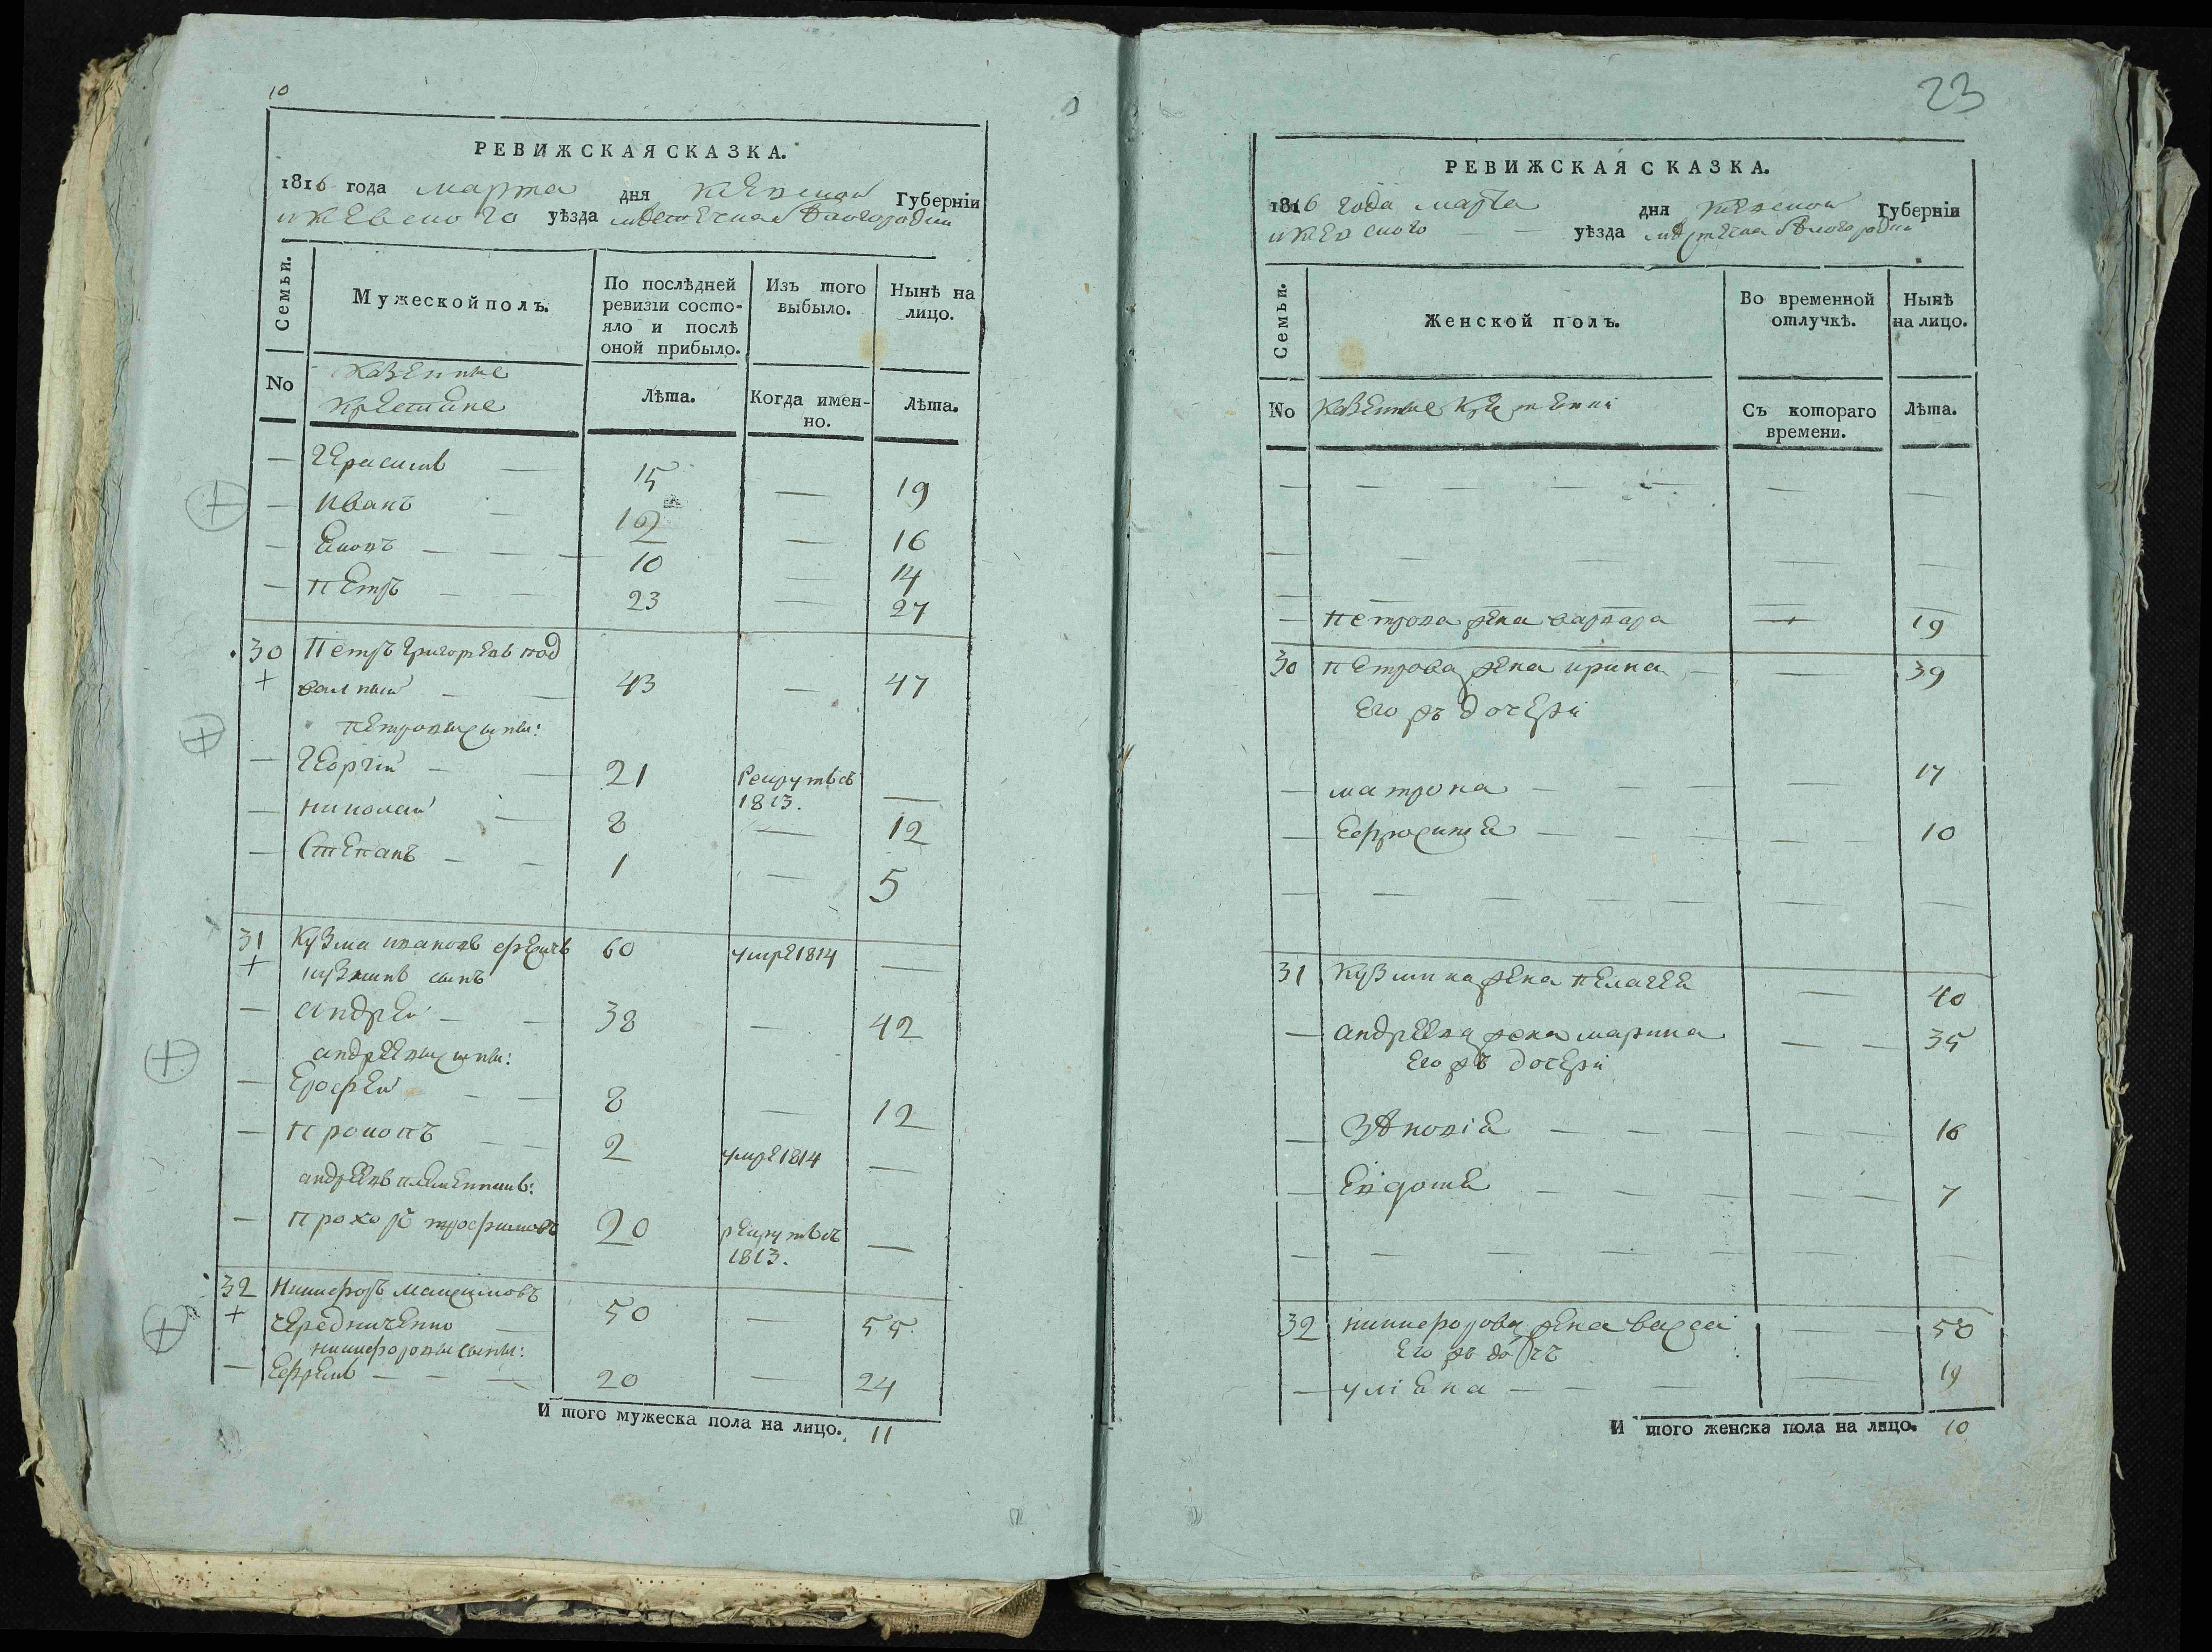 10
РЕВИЖСКАЯ СКАЗКА.
1816 года марта дня Киевской Губерніи
и Киевского уѣзда местечка Бѣлогородки
Семьи. Мужеской полъ. По послѣдней ревизіи состо- Изъ того Нынѣ на
яло и послѣ выбыло. лицо.
оной прибыло.
No Казенные Лѣта. Когда имен- Лѣта.
Крестяне но.
— Герасимъ — 15 — 19
— Иванъ — 12 — 16
— — — — 10 — 14
— Петръ — — 23 — 27
30 Петръ Григорьевъ под
валный — — 43 — 47
Петровы сыны:
— Георгій — — 21 Рекрутъ въ 1813. —
— Николай — 8 — 12
— Степанъ — — 1 — 5
31 Кузма Ивановъ 60 умре 1814 —
Кузминъ сынъ
— Андрей — — 38 — 42
Андреевы сыны:
— Ерофей — — 8 — 12
— Прокопъ — — 2 умре 1814 —
Андреевъ племенникъ:
— Прохоръ Трофимовъ 20 рекрутъ въ 1813. —
32 Никифоръ Максимовъ
Чередниченко — 50 — 55.
Никифоровы сыны:
— Ефремъ — — — 20 — 24
И того мужеска пола на лицо. 11
23
РЕВИЖСКАЯ СКАЗКА.
1816 года марта дня Киевской Губерніи
и Киевского — — уѣзда местечка Бѣлогородки
Семьи. Женской полъ. Во временной Нынѣ
отлучкѣ. на лицо.
No Казенные Крестянки Съ котораго Лѣта.
времени.
— Петрова жена Варвара — 19
30 Петрова жена Ирина — — 39
Его жъ дочери
— Матрона — — — — 17
— Ефросиния — — — — — 10
31 Кузмина жена Пелагея — 40
— Андреева жена Марина — — 35
Его жъ дочери
— Зѣновія — — — — — 16
— Евдокия — — — — — 7
32 Никифорова жена — — 50
Его жъ дочъ
— Улияна — — — — 19
И того женска пола на лицо. 10